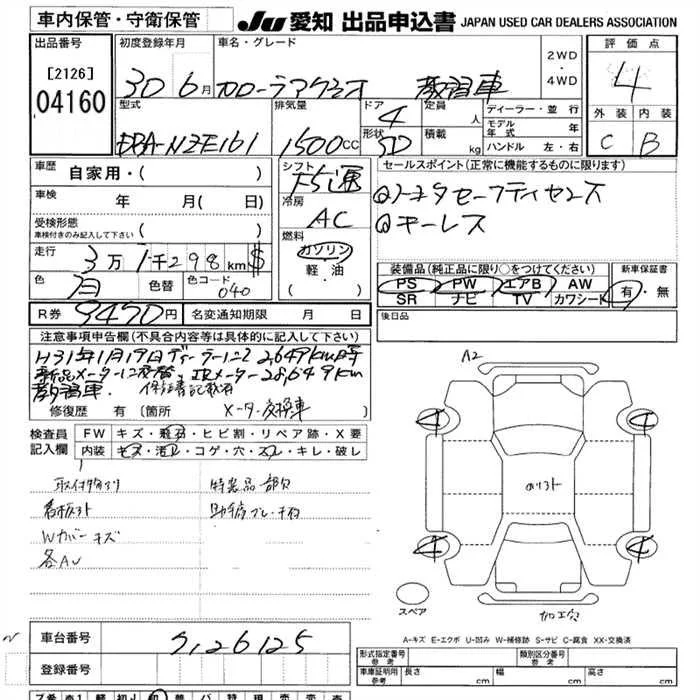 車内保管・守衛保管
JU 愛知 出品申込書 JAPAN USED CAR DEALERS ASSOCIATION
出品番号 [2126] 04160
初度登録年月 30 6月
車名・グレード カローラアクシオ 教習車
2WD・4WD
評価点 4
外装 内装
C B
型式 DBA-NZE161
排気量 1500CC
ドア 4
形状 SD
定員 人
積載 kg
ディーラー・並行
モデル年式 年
ハンドル 左・右
車歴 自家用・( )
シフト F5速
セールスポイント(正常に機能するものに限ります)
◎トヨタセーフティセンス
◎キーレス
車検 年 月( 日)
冷房 AC
受検形態 車検付きのみ記入して下さい ( )
燃料 ガソリン 軽油 ・( )
走行 3万1千298km
色 白 色替 色コード 040
装備品(純正品に限り○をつけてください)
PS PW エアB AW
SR ナビ TV カワシート
新車保証書 有・無
R券 9490円 名変通知期限 月 日
後日品
注意事項申告欄(不具合内容等は具体的に記入して下さい)
H31年1月19日ディーラーにて2,649km時
新品メーターに交換、旧メーター28,649km
教習車. 保証書記載有
修復歴 有 [箇所 メーター交換車
検査員記入欄
FW キズ・飛石・ヒビ割・リペア跡・X要
内装 キズ・汚レ・コゲ・穴・スレ・キレ・破レ
取付物有り 特装品部欠
看板外ト 助手席ブレーキ有
Wカバーキズ
各AU
A2
4 4
4 4
スペア
A-キズ E-エクボ U-凹み W-補修跡 S-サビ C-腐食 XX-交換済
車台番号 9126125
登録番号
形式指定番号 参考
類別区分番号 参考
車庫証明用 参考 長さ cm 幅 cm 高さ cm